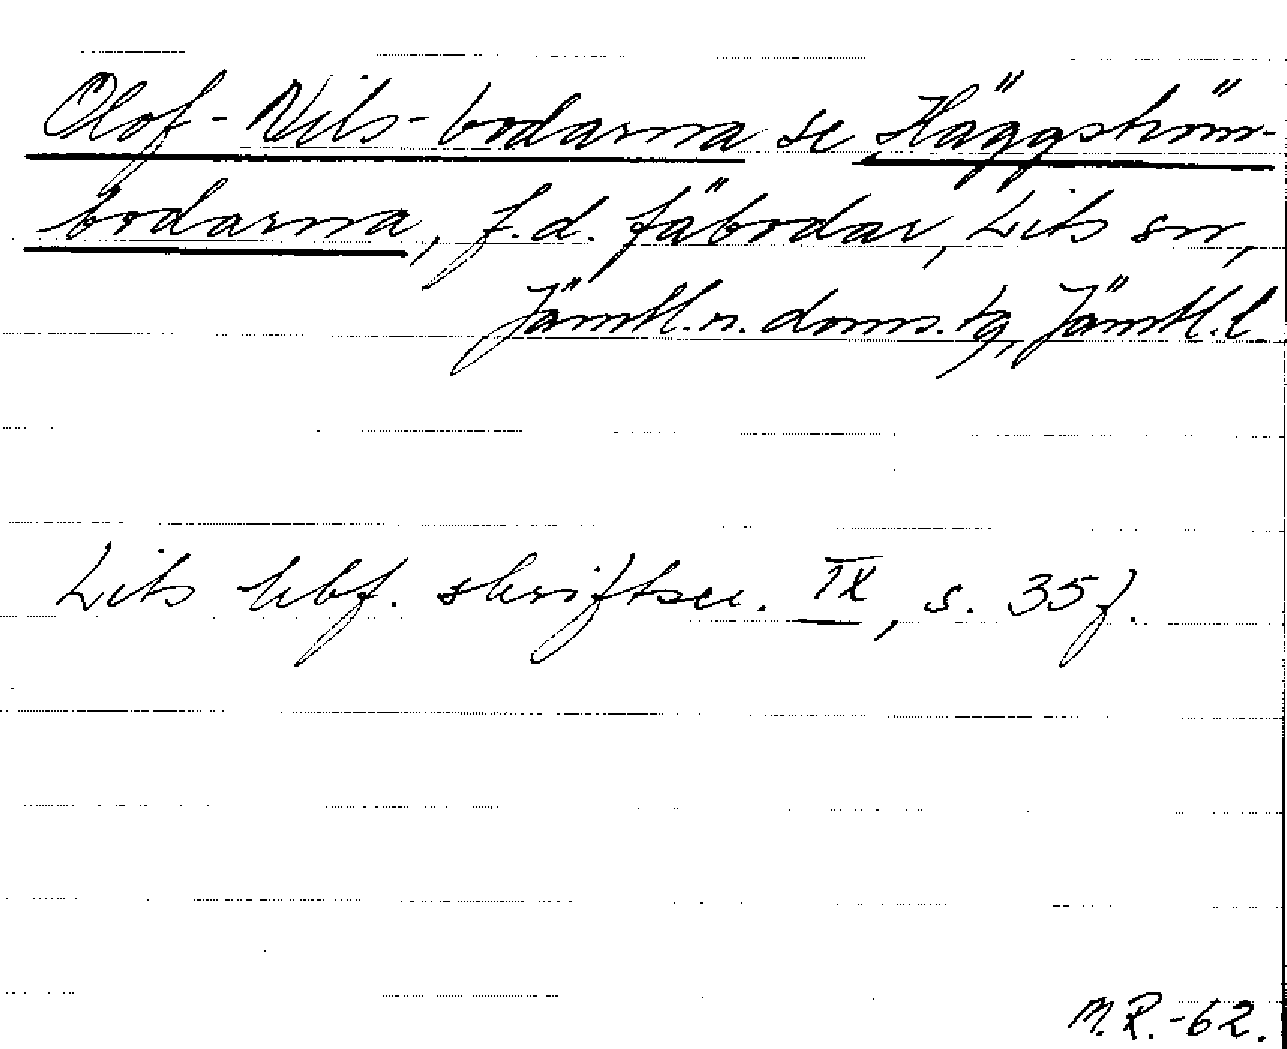 Olof-Nils-bodarna se Häggström-
bodarna, f.d. fäbodar, Lits sn,
Jämtl.n. doms.tg, Jämtl.l.
Lits hbf. skriftser. IX, s. 35f.
M.R.-62.